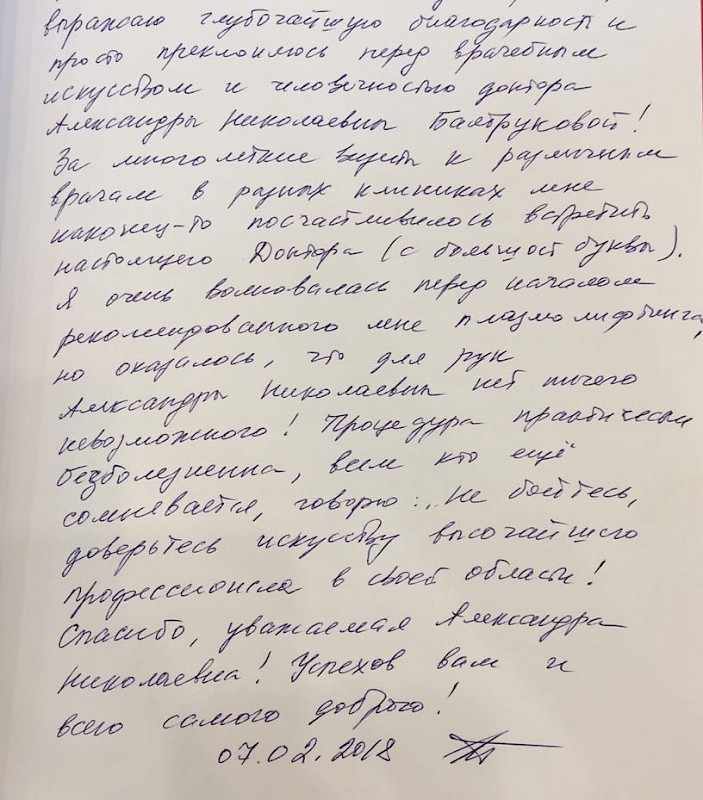 выражаю глубочайшую благодарность и
просто преклоняюсь перед врачебным
искусством и человечностью доктора
Александры Николаевны Баструковой!
За многолетние визиты к различным
врачам в разных клиниках мне
наконец-то посчастливилось встретить
настоящего Доктора (с большой буквы).
Я очень волновалась перед началом
рекомендованного мне плазмолифтинга,
но оказалось, что для рук
Александры Николаевны нет ничего
невозможного! Процедура практически
безболезненна, всем кто ещё
сомневается, говорю: „Не бойтесь,
доверьтесь искусству высочайшего
профессионала в своей области!
Спасибо, уважаемая Александра
Николаевна! Успехов вам и
всего самого доброго!
07.02.2018